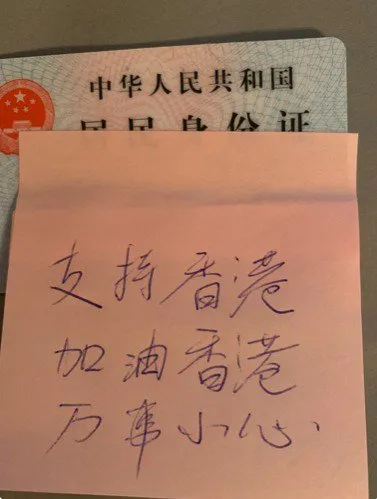 中华人民共和国
居民身份证
支持香港
加油香港
万事小心